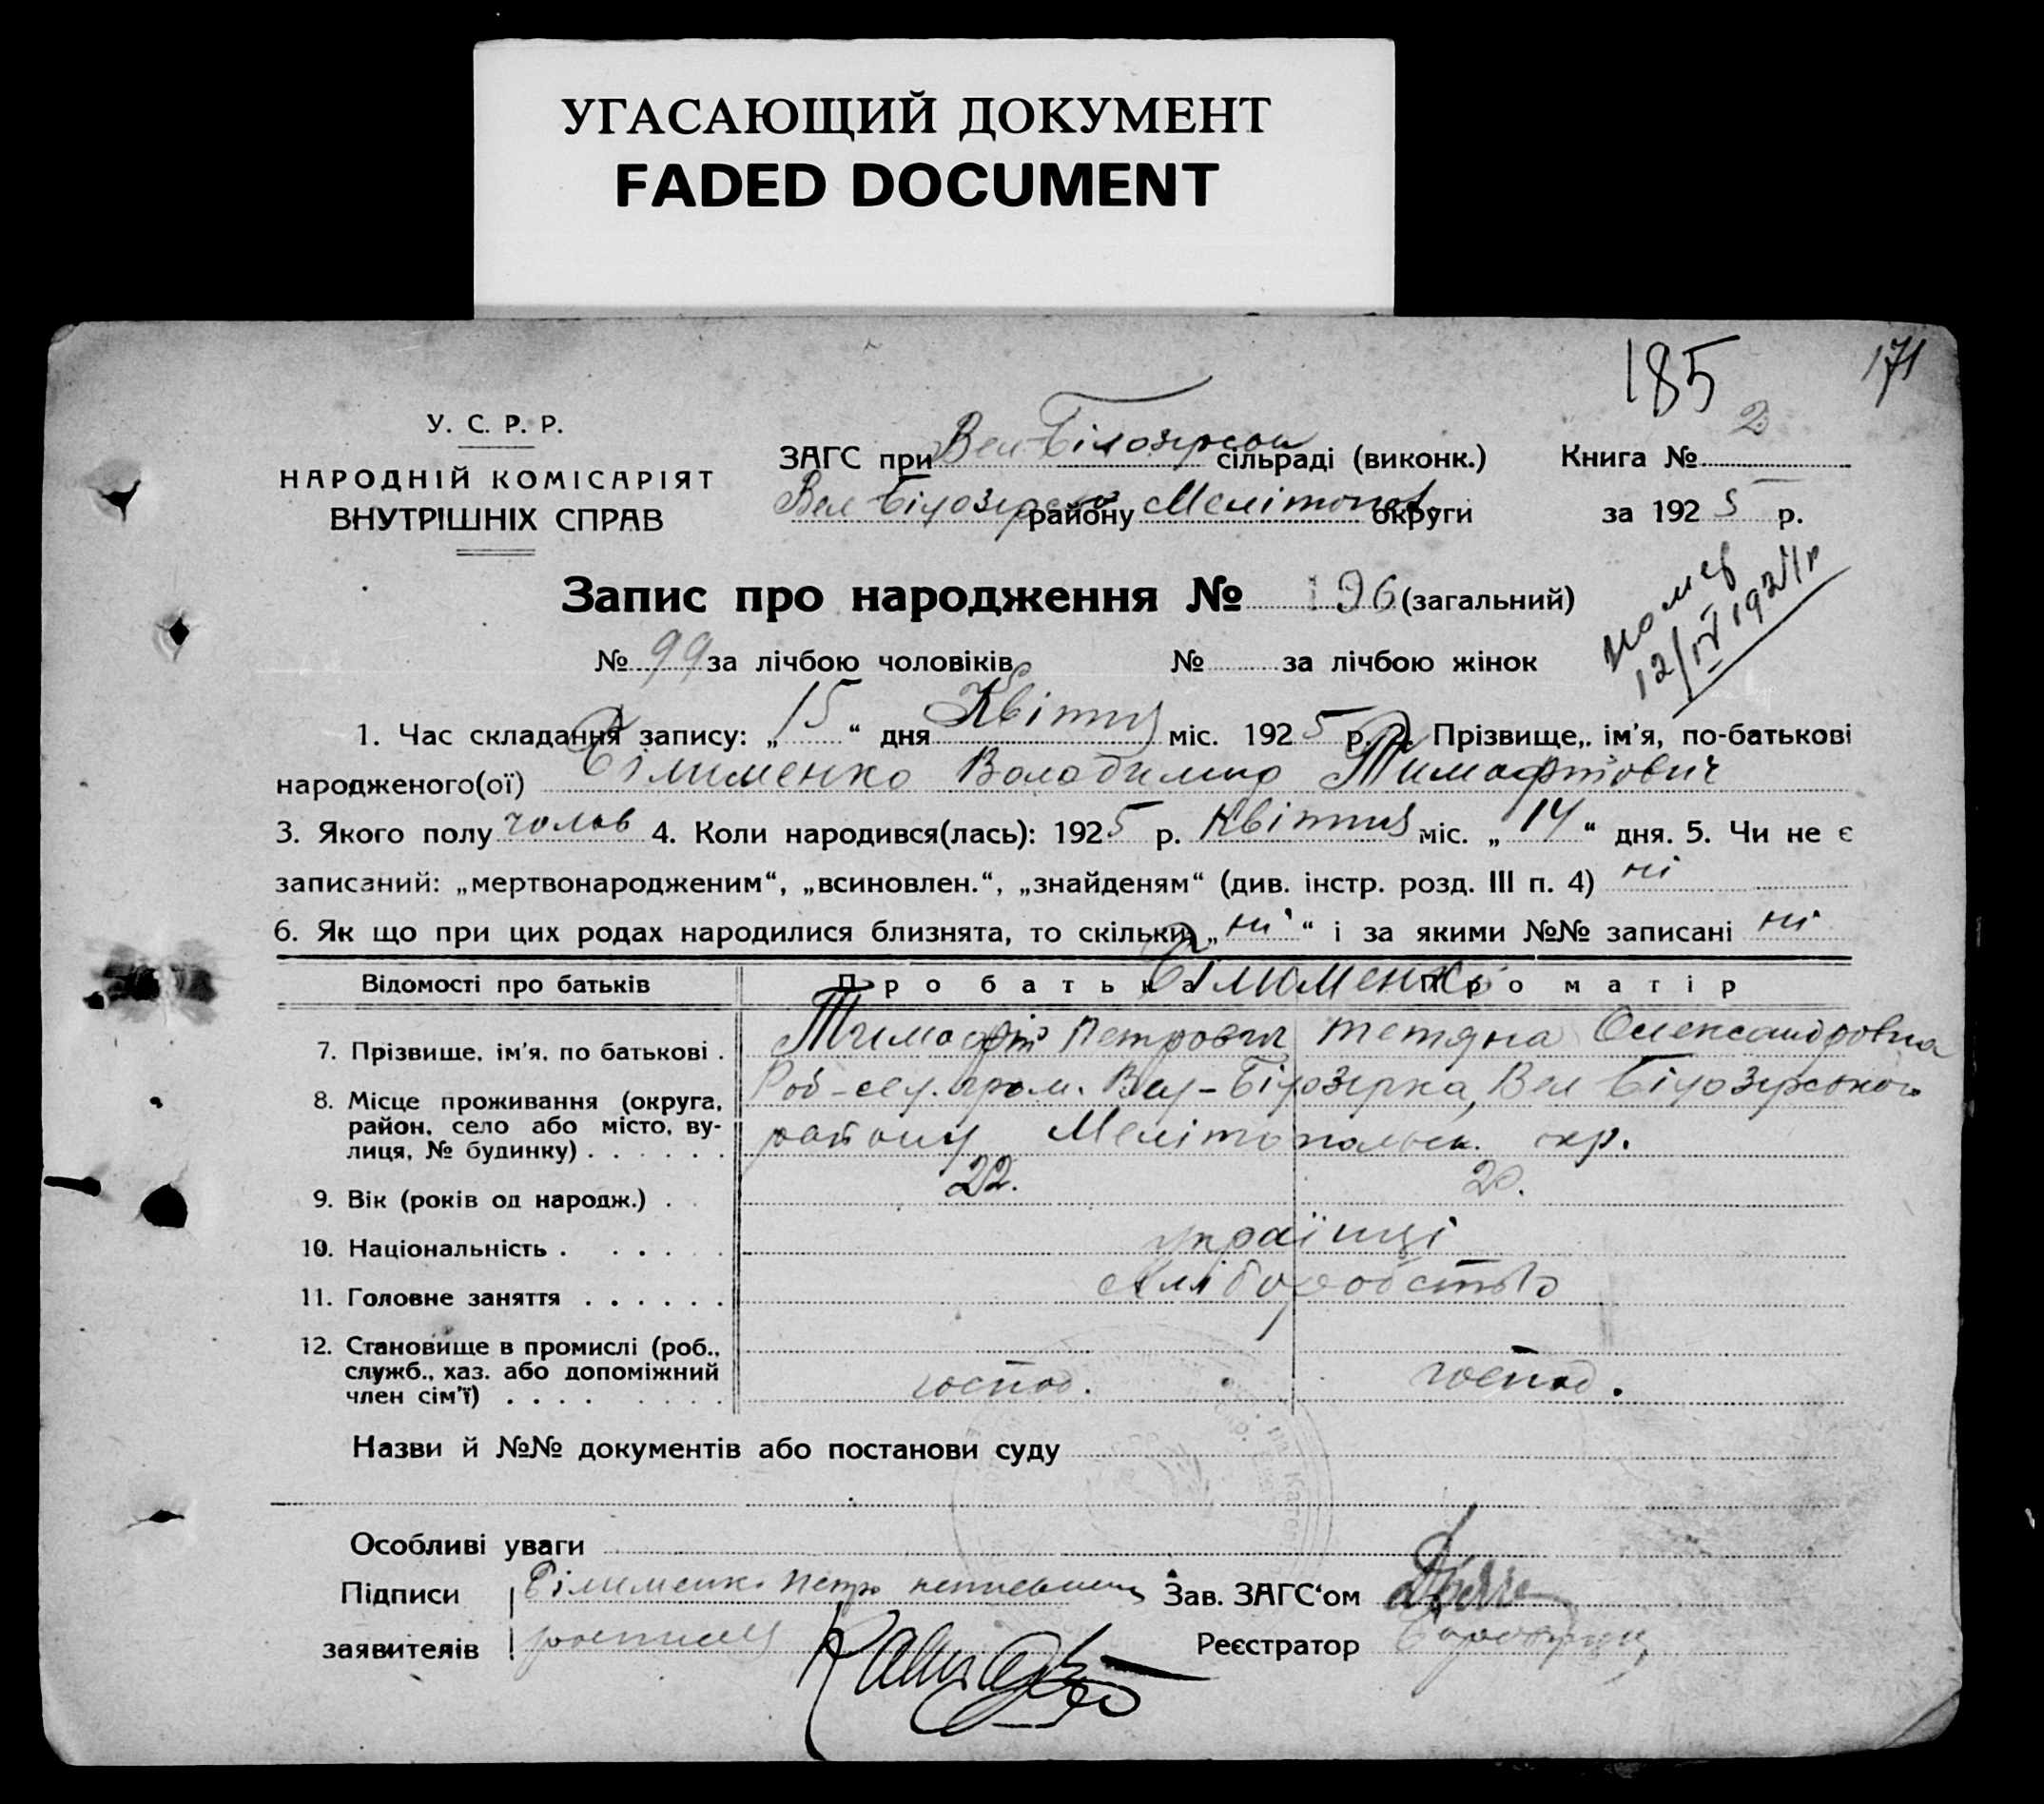 УГАСАЮЩИЙ ДОКУМЕНТ
FADED DOCUMENT
185
171
У. С. Р. Р.
НАРОДНІЙ КОМІСАРІЯТ
ВНУТРІШНІХ СПРАВ
ЗАГС при Вел Білозерськ сільраді (виконк.)
Вел Білозерськ району Мелітопол. округи
Книга № 2
за 1925 р.
Запис про народження № 196 (загальний)
помер
12/IV 1927 р
№ 99 за лічбою чоловіків
№ за лічбою жінок
1. Час складання запису: „ 15 “ дня Квітня міс. 1925 р. 2. Прізвище,. ім'я, по-батькові
народженого(ої) Білименко Володимир Тимофійович
3. Якого полу чолов 4. Коли народився(лась): 1925 р. Квітня міс. „ 14 “ дня. 5. Чи не є
записаний: „мертвонародженим“, „всиновлен.“, „знайденям“ (див. інстр. розд. III п. 4) ні
6. Як що при цих родах народилися близнята, то скільки „ ні “ і за якими №№ записані ні
Відомості про батьків
Про батька
Про матір
Білименко
7. Прізвище, ім'я, по батькові .
Тимофій Петрович
Тетяна Олександровна
8. Місце проживання (округа,
район, село або місто, ву-
лиця, № будинку) . . . . . .
Роб-сел. гром. Вел-Білозерка, Вел Білозерського
району Мелітопольськ. окр.
9. Вік (років од народж.) . .
22.
20.
10. Національність . . . . . .
українці
11. Головне заняття . . . . . .
Хліборобство
12. Становище в промислі (роб.,
служб., хаз. або допоміжний
член сім'ї) . . . . . . . .
господ.
господ.
Назви й №№ документів або постанови суду
Особливі уваги
Підписи
заявителів
Білименко Петро неписьменн
Зав. ЗАГС'ом
Реєстратор